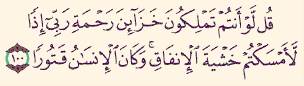 قُل لَّوْ أَنتُمْ تَمْلِكُونَ خَزَآئِنَ رَحْمَةِ رَبِّىٓ إِذًا
لَّأَمْسَكْتُمْ خَشْيَةَ ٱلْإِنفَاقِ ۚ وَكَانَ ٱلْإِنسَٰنُ قَتُورًا ١٠٠